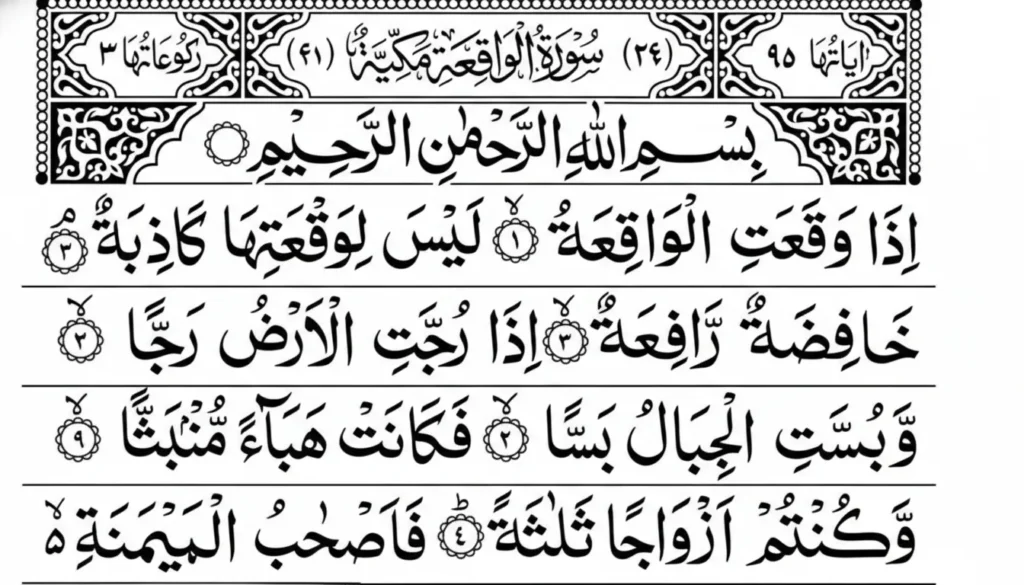 اٰيَاتُهَا ٩٥ (٢٤) سُوْرَةُ الْوَاقِعَةِ مَكِّيَّةٌ (٤١) رُكُوْعَاتُهَا ٣
بِسْمِ اللّٰهِ الرَّحْمٰنِ الرَّحِيْمِ
اِذَا وَقَعَتِ الْوَاقِعَةُ ۙ﴿١﴾ لَيْسَ لِوَقْعَتِهَا كَاذِبَةٌ ۘ﴿٣﴾
خَافِضَةٌ رَّافِعَةٌ ۙ﴿٣﴾ اِذَا رُجَّتِ الْاَرْضُ رَجًّا ۙ﴿٢﴾
وَّبُسَّتِ الْجِبَالُ بَسًّا ۙ﴿٢﴾ فَكَانَتْ هَبَآءً مُّنْۢبَثًّا ۙ﴿٩﴾
وَّكُنْتُمْ اَزْوَاجًا ثَلٰثَةً ؕ﴿٤﴾ فَاَصْحٰبُ الْمَيْمَنَةِ ۙ۵